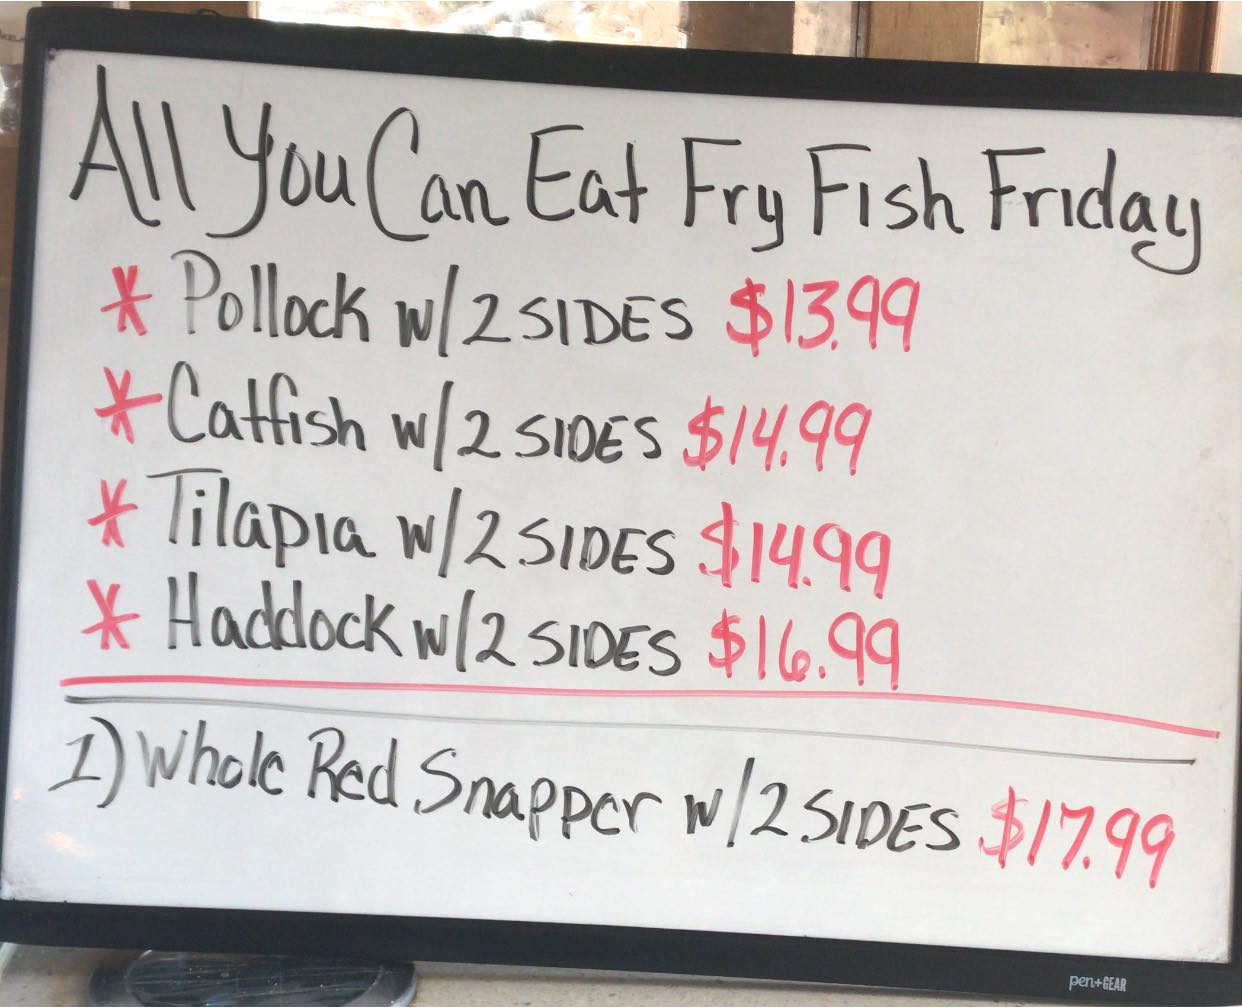 All You Can Eat Fry Fish Friday
* Pollock w/2 SIDES $13.99
* Catfish w/2 SIDES $14.99
* Tilapia w/2 SIDES $14.99
* Haddock w/2 SIDES $16.99
1) Whole Red Snapper w/2 SIDES $17.99
pen+GEAR